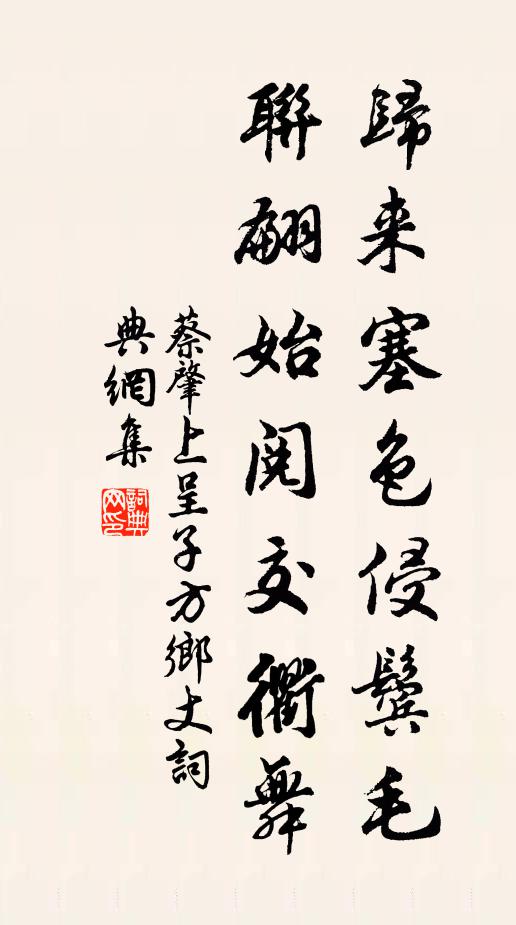 歸来塞色侵鬓毛
聯翩始閱交衢舞
蔡肇上呈子方鄉丈詞
典網集
詞典网印